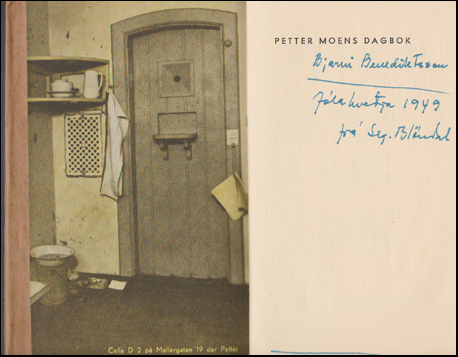 PETTER MOENS DAGBOK
Bjarni Benediktsson
Jólakveðja 1949
frá Sig. Blöndal
Celle D 2 på Møllergaten 19 der Petter